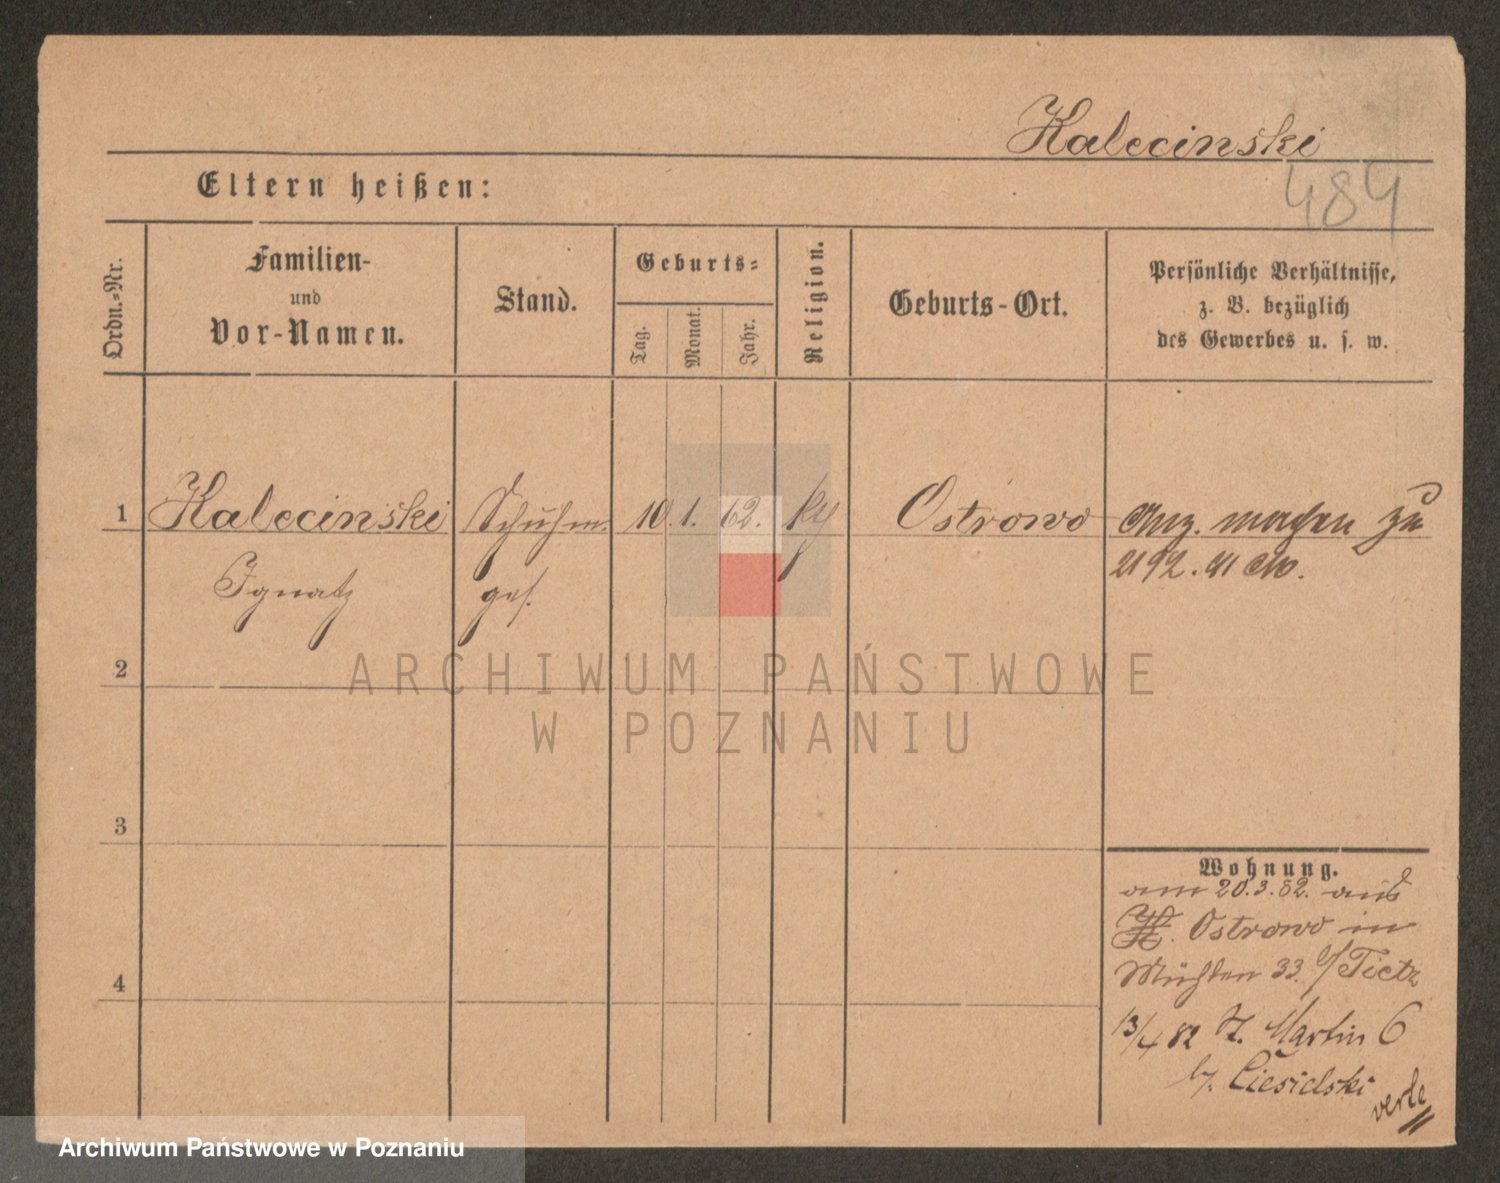 Kalecinski
484
Eltern heißen:
Ordn.-Nr.
Familien-
und
Vor-Namen.
Stand.
Geburts-
Tag.
Monat.
Jahr.
Religion.
Geburts-Ort.
Persönliche Verhältnisse,
z. B. bezüglich
des Gewerbes u. s. w.
1 Kalecinski Schuhm. 10. 1. 62. Ostrowo
Ignatz ges.
2
3
4
ARCHIWUM PAŃSTWOWE
W POZNANIU
Wohnung.
am 20.3.82. aus
Ostrowo in
Mühlen 33. Tietz
13/4 82 St. Martin 6
b. Ciesielski
Archiwum Państwowe w Poznaniu